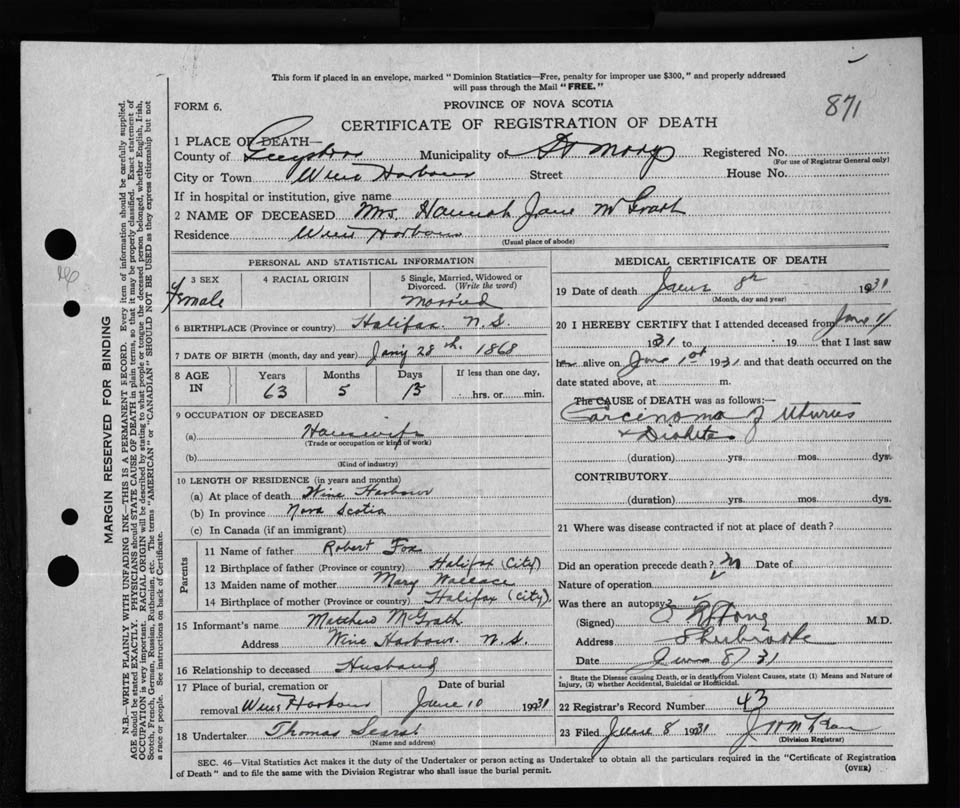 This form if placed in an envelope, marked "Dominion Statistics—Free, penalty for improper use $300," and properly addressed
will pass through the Mail "FREE."
871
FORM 6.
PROVINCE OF NOVA SCOTIA
CERTIFICATE OF REGISTRATION OF DEATH
1 PLACE OF DEATH—
County of Guysboro Municipality of St Marys Registered No.
(For use of Registrar General only)
City or Town Wine Harbour Street House No.
If in hospital or institution, give name
2 NAME OF DECEASED Mrs. Hannah Jane McGrath
Residence Wine Harbour
(Usual place of abode)
PERSONAL AND STATISTICAL INFORMATION
3 SEX
Female
4 RACIAL ORIGIN
5 Single, Married, Widowed or
Divorced. (Write the word)
Married
6 BIRTHPLACE (Province or country) Halifax. N.S.
7 DATE OF BIRTH (month, day and year) Jan'y 28th. 1868
8 AGE IN Years Months Days If less than one day,
63 5 13 hrs. or min.
9 OCCUPATION OF DECEASED
(a) Housewife
(Trade or occupation or kind of work)
(b)
(Kind of industry)
10 LENGTH OF RESIDENCE (in years and months)
(a) At place of death Wine Harbour
(b) In province Nova Scotia
(c) In Canada (if an immigrant)
Parents
11 Name of father Robert Fox
12 Birthplace of father (Province or country) Halifax (City)
13 Maiden name of mother Mary Wallace
14 Birthplace of mother (Province or country) Halifax (City).
15 Informant's name Matthew McGrath
Address Wine Harbour. N.S.
16 Relationship to deceased Husband
17 Place of burial, cremation or Date of burial
removal Wine Harbour June 10 1931
18 Undertaker Thomas
(Name and address)
MEDICAL CERTIFICATE OF DEATH
19 Date of death June 8th 1931
(Month, day and year)
20 I HEREBY CERTIFY that I attended deceased from June 1
1931 to 19 that I last saw
her alive on June 1st 1931 and that death occurred on
date stated above, at m.
The CAUSE of DEATH was as follows:—
Carcinoma of Uturus
+ Diabetes
(duration) yrs. mos. dys.
CONTRIBUTORY.
(duration) yrs. mos. dys.
21 Where was disease contracted if not at place of death?
Did an operation precede death? N Date of
Nature of operation
Was there an autopsy?
(Signed) M.D.
Address Sherbrooke
Date June 8/31
* State the Disease causing Death, or in death from Violent Causes, state (1) Means and Nature of
Injury, (2) whether Accidental, Suicidal or Homicidal.
22 Registrar's Record Number 43
23 Filed June 8 1931
(Division Registrar)
SEC. 46—Vital Statistics Act makes it the duty of the Undertaker or person acting as Undertaker to obtain all the particulars required in the "Certificate of Registration
of Death" and to file the same with the Division Registrar who shall issue the burial permit.
(OVER)
MARGIN RESERVED FOR BINDING
N.B.—WRITE PLAINLY WITH UNFADING INK—THIS IS A PERMANENT RECORD. Every item of information should be carefully supplied.
AGE should be stated EXACTLY. PHYSICIANS should STATE CAUSE OF DEATH in plain terms, so that it may be properly classified. Exact statement of
OCCUPATION is very important. RACIAL ORIGIN will be described by stating to what people or tongue the deceased person belonged, whether English, Irish,
Scotch, French, German, Russian, Ruthenian, etc. The terms "AMERICAN" or "CANADIAN" SHOULD NOT BE USED as they express citizenship but not
a race or people. See instructions on back of Certificate.